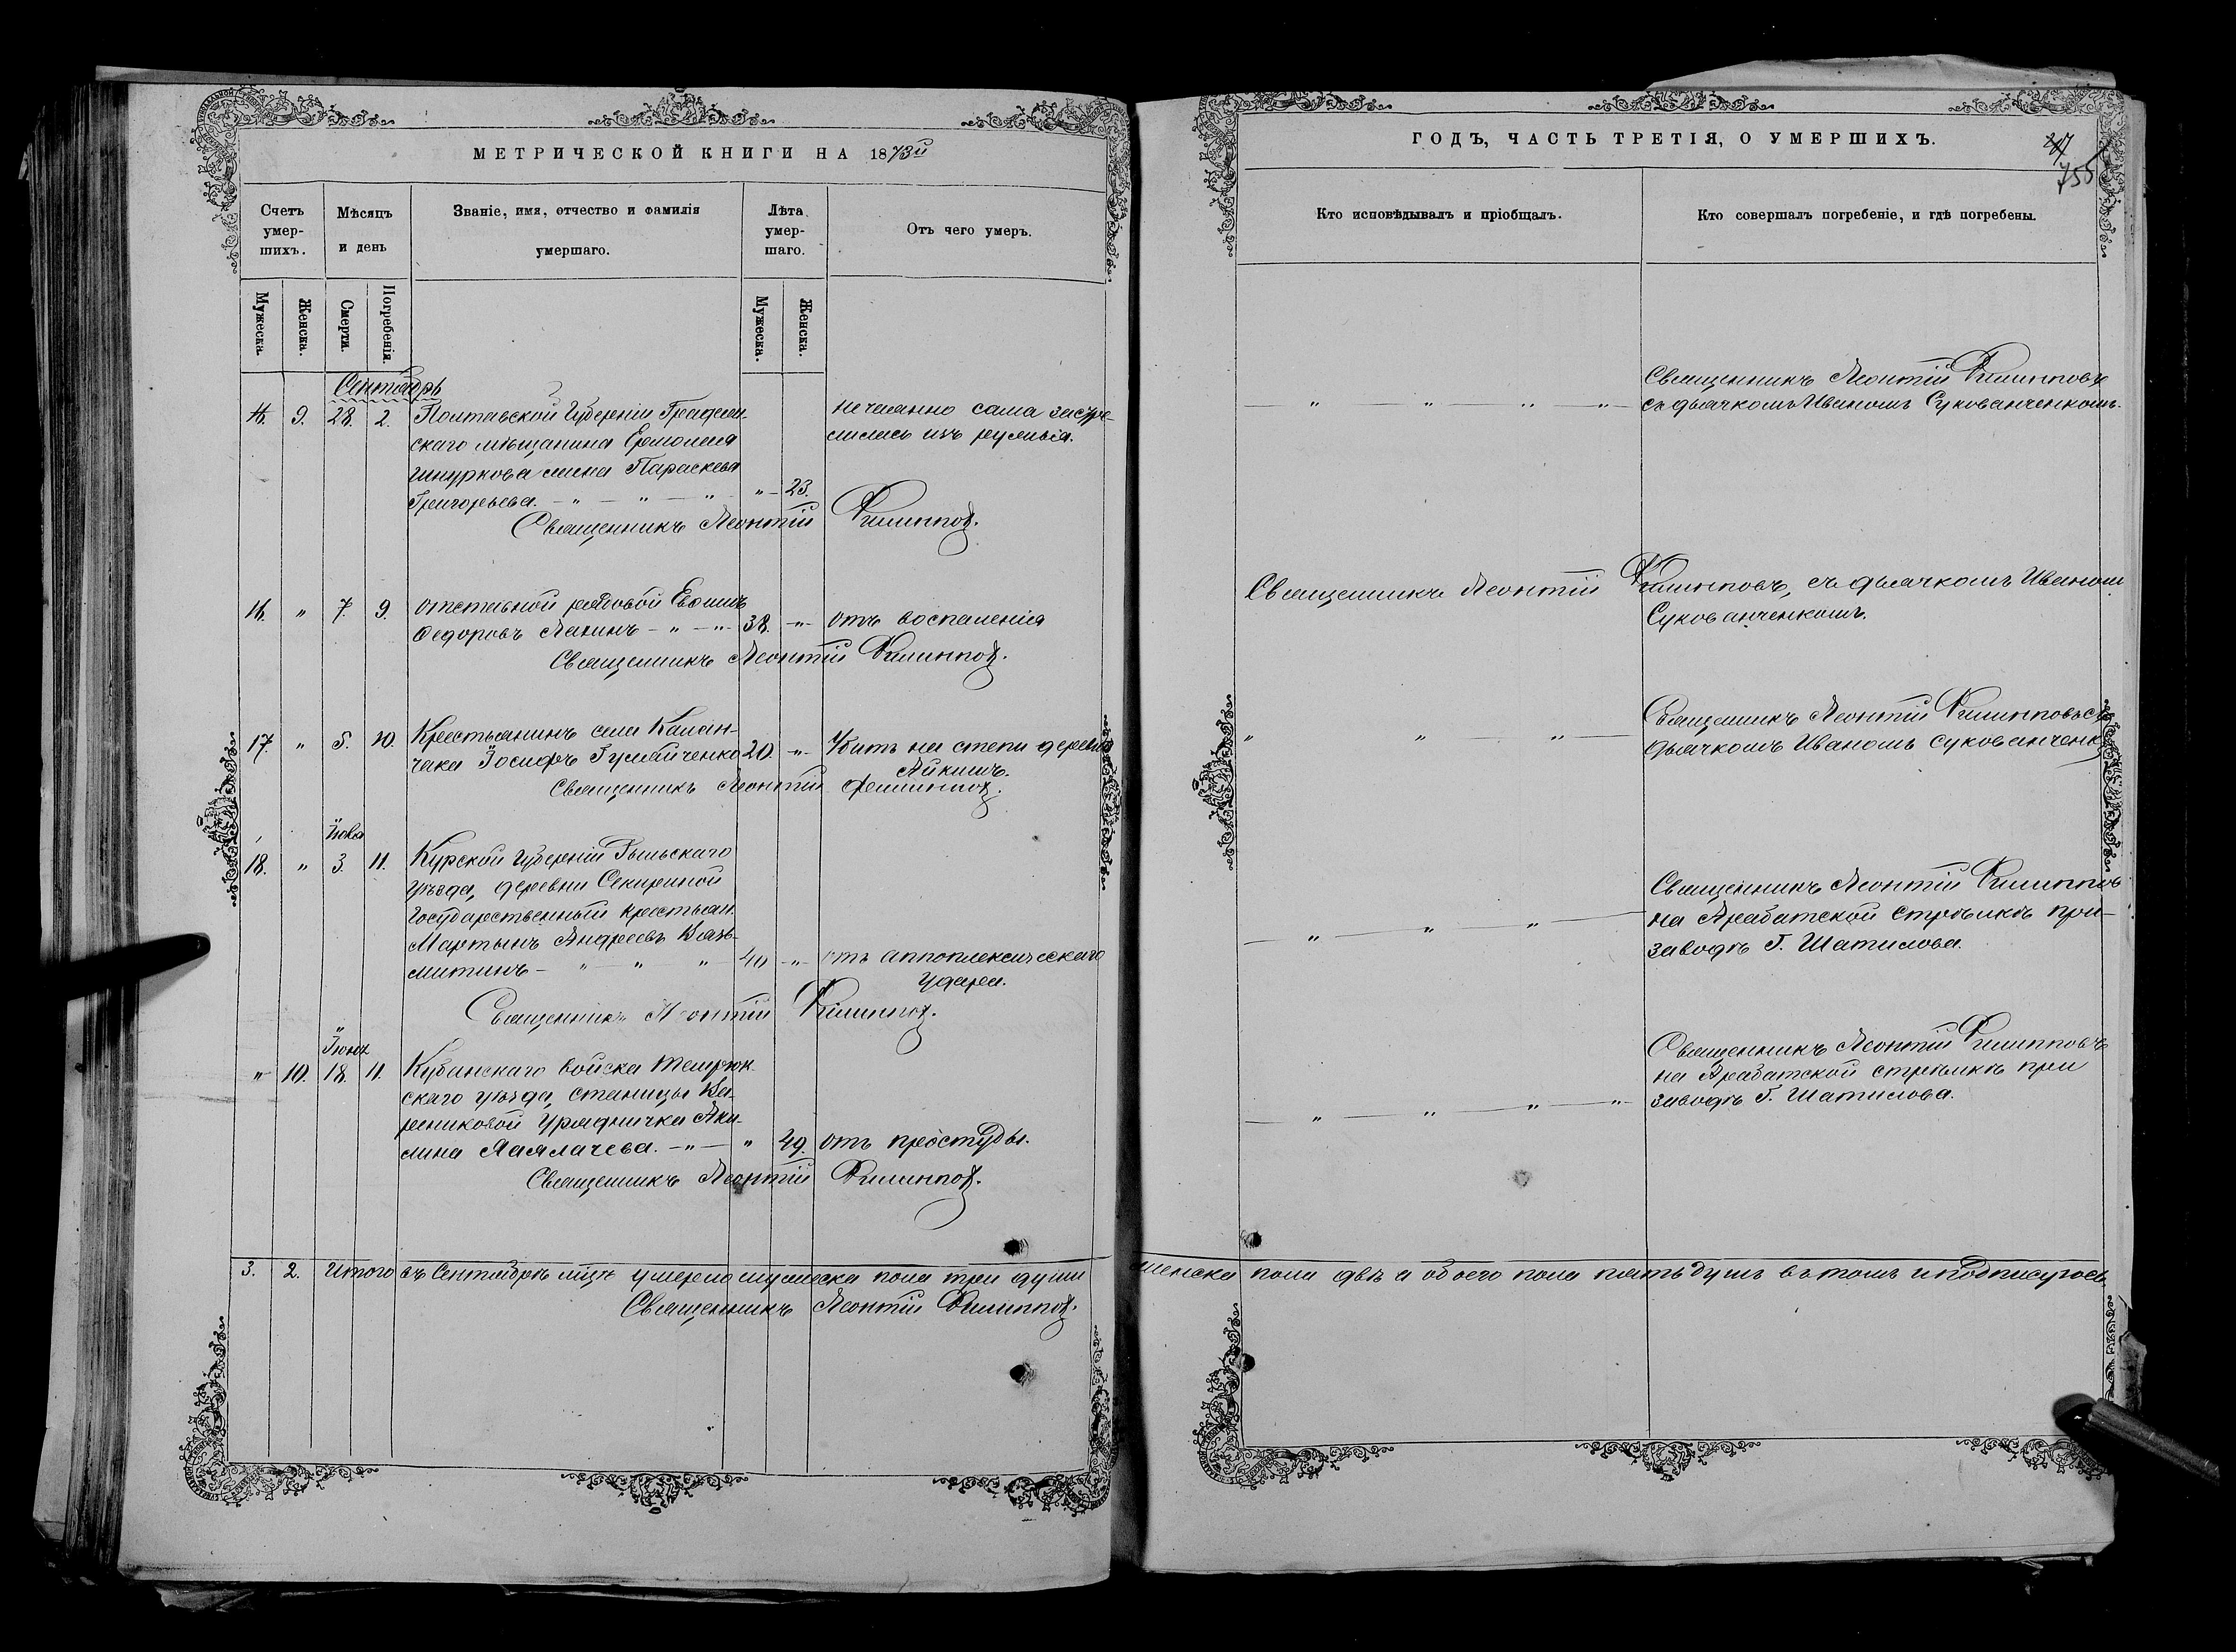 МЕТРИЧЕСКОЙ КНИГИ НА 1873й
Счетъ умер- шихъ.
Мѣсяцъ и день
Званіе, имя, отчество и фамилія
умершаго.
Лѣта умер- шаго.
Отъ чего умеръ.
Мужеска.
Женска.
Смерти.
Погребенія.
Мужеска.
Женска.
Сентябрь
9. 28. 2. Полтавской Губерніи Градиж- нечаянно сама застре-
скаго мѣщанина Ермолая лилась изъ ружья.
жена Параскева
Григорьева. — „ — „ — „ „ 23.
Священникъ Леонтій Филиппов.
16. „ 7. 9. отставной рядовой Евфимъ
Федоровъ — „ — „ 38. „ отъ воспаленія
Священникъ Леонтій Филиппов.
17. „ 5. 10. Крестьянинъ села Калан-
чака Іосифъ 20. „ Убитъ на степи деревни
Священникъ Леонтій Филиппов.
18. „ 3. 11. Курской Губерніи Рыльскаго
уѣзда, деревни Секириной
Государственный крестьян.
Мартынъ Андреевъ
— „ — „ — „ 40 „ отъ апоплексическаго
удара.
Священникъ Леонтій Филиппов.
Іюня
„ 10. 18. 11. Кубанскаго войска Темрюк-
скаго уѣзда, станицы
Урядничка Аку-
лина — „ — „ 49. отъ простуды.
Священникъ Леонтій Филиппов.
3. 2. Итого въ Сентябрѣ мцѣ умерло мужеска пола три души
Священникъ Леонтій Филиппов.
ГОДЪ, ЧАСТЬ ТРЕТІЯ, О УМЕРШИХЪ.
755
Кто исповѣдывалъ и пріобщалъ.
Кто совершалъ погребеніе, и гдѣ погребены.
Священникъ Леонтій Филипповъ
съ дьячкомъ Иваномъ Сукованченкомъ.
Священникъ Леонтій Филипповъ, съ дьячкомъ Иваномъ
Сукованченкомъ.
Священникъ Леонтій Филипповъ съ
дьячкомъ Иваномъ Сукованченк
Священникъ Леонтій Филипповъ
на Арабатской стрѣлкѣ при
заводѣ Г. Шатилова.
Священникъ Леонтій Филипповъ
на Арабатской стрѣлкѣ при
заводѣ Г. Шатилова.
женска пола двѣ а обоего пола пять душъ въ томъ и подписуюсь